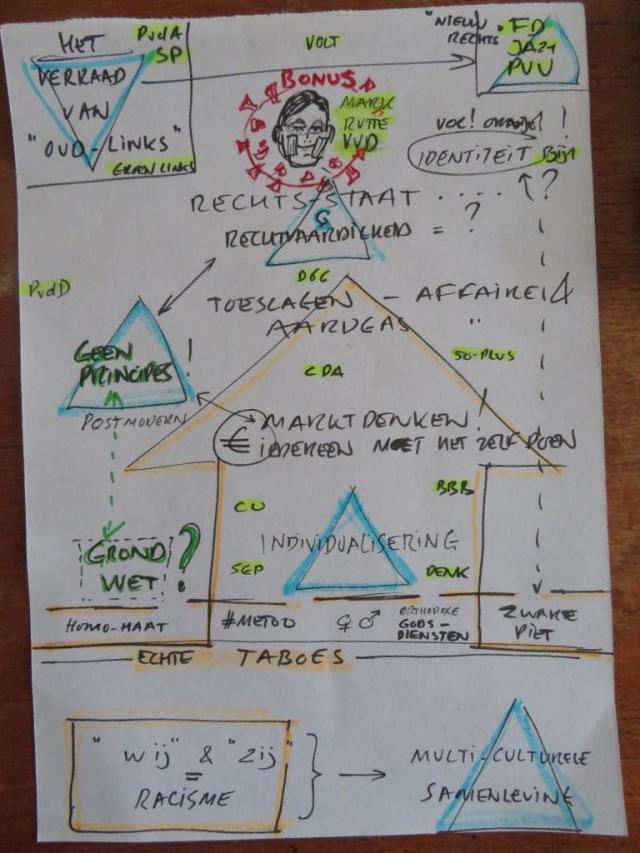 HET
VERRAAD
VAN
"OUD-LINKS"
PvdA
SP
GROENLINKS
VOLT
"NIEUW
RECHTS"
FD
JA21
PVV
BONUS
MARK
RUTTE
VVD
VOC!
!
IDENTITEIT BIJ1
RECHTS-STAAT . . . . ?
RECHTVAARDIGHEID = ?
D66
PvdD
TOESLAGEN - AFFAIRE
AARDGAS "
50-PLUS
CDA
GEEN
PRINCIPES!
POSTMODERN
MARKTDENKEN!
€ IEDEREEN MOET HET ZELF DOEN
CU
BBB
INDIVIDUALISERING
SGP
DENK
GROND
WET ?
HOMO-HAAT
#METOO
♀ ♂
ORTHODOXE
GODS-
DIENSTEN
ZWARTE
PIET
ECHTE TABOES
"wij" & "zij"
=
RACISME
MULTI-CULTURELE
SAMENLEVING